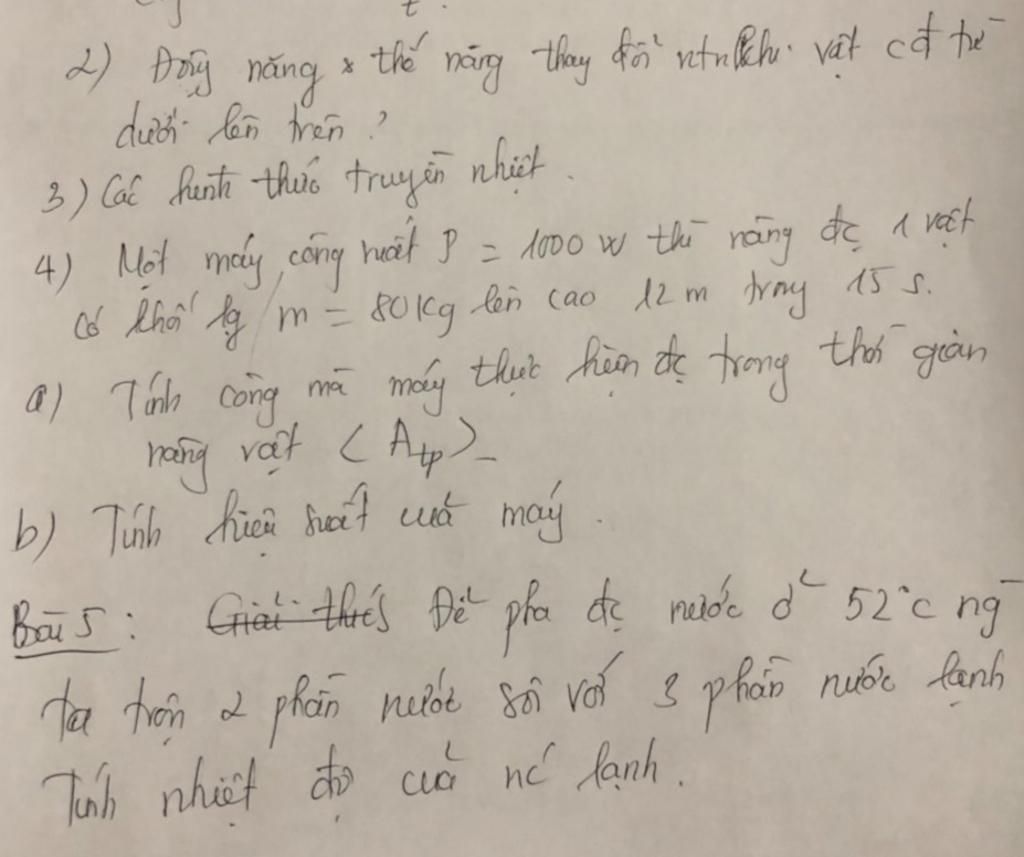 t.
2) Động năng & thế năng thay đổi ntn khi vật cđ từ
dưới lên trên?
3) Các hình thức truyền nhiệt.
4) Một máy công suất P = 1000 W thì nâng đc 1 vật
có khối lg m = 80 Kg lên cao 12 m trong 15 s.
a) Tính công mà máy thực hiện đc trong thời gian
nâng vật < Atp >
b) Tính hiệu suất của máy.
Bài 5: Giải thích Để pha đc nước ở 52°C ng
ta trộn 2 phần nước sôi với 3 phần nước lạnh
Tính nhiệt độ của nc lạnh.